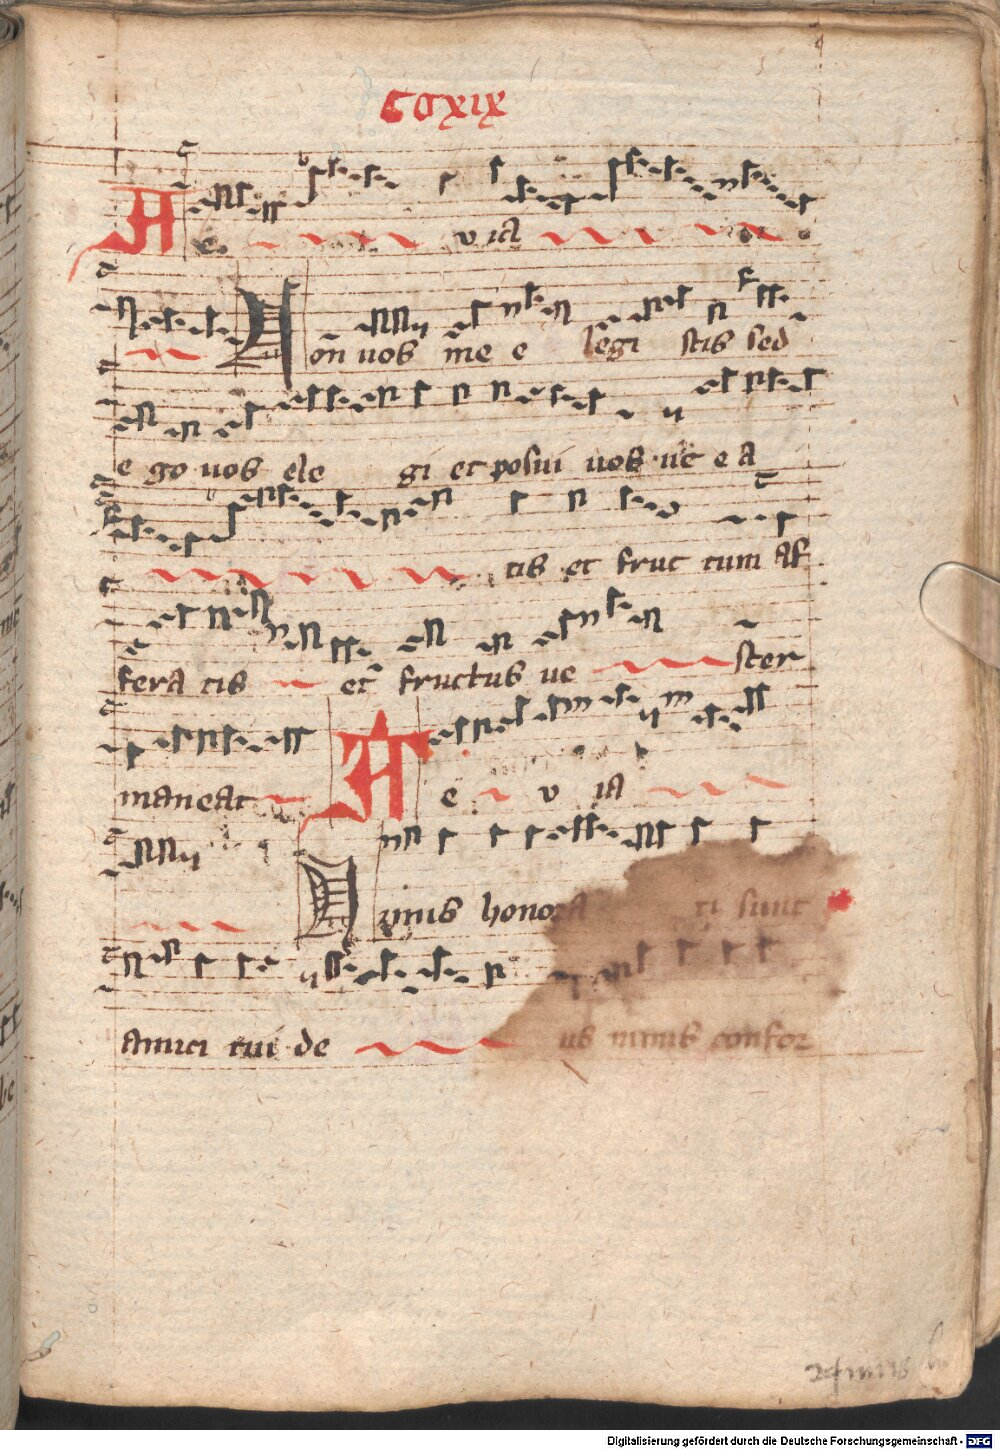 CCXIX
A e v ia
Non vos me e legi stis sed
e go vos ele gi et posui vos ut e a
tis et fruc tum af
fera tis et fructus ve ster
maneat A e v ia
Nimis honora ti sunt
amici tui de us nimis confor
Digitalisierung gefördert durch die Deutsche Forschungsgemeinschaft - DFG